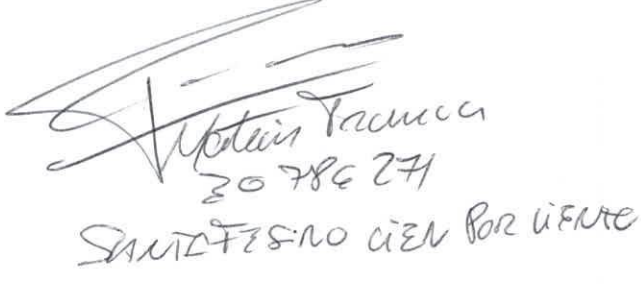 Matías Franca
30 786 271
SANTAFESINO CIEN POR CIENTO